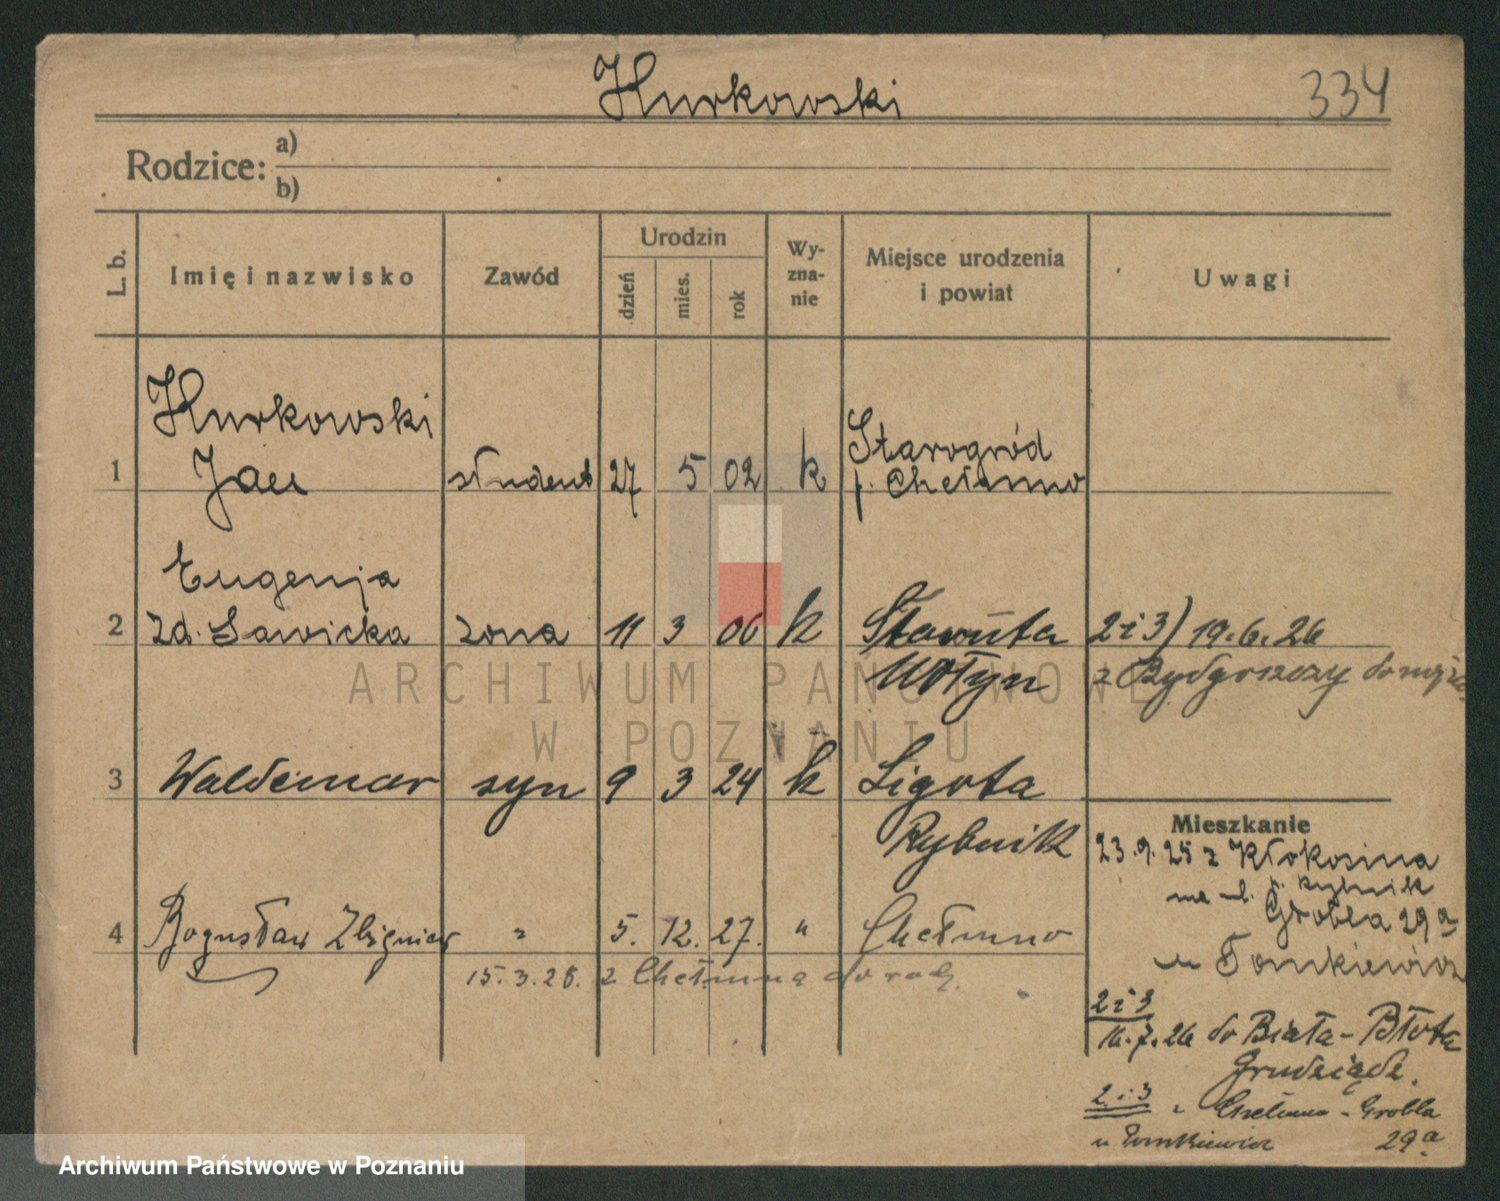 Hurkowski 334
Rodzice: a)
b)
L. b. Imię i nazwisko Zawód Urodzin dzień mies. rok Wy-zna-nie Miejsce urodzenia i powiat Uwagi
Hurkowski
1 Jan student 27 5 02 k Starogród
p. Chełmno
Eugenja
2 zd. Sawicka żona 11 3 06 k Sławuta 2 i 3) 19.6.26
Wołyn z Bydgoszczy do męża
ARCHIWUM PAŃSTWOWE
W POZNANIU
3 Waldemar syn 9 3 24 k Ligota
Rybnik
Mieszkanie
23.9.25 z Kłokosina
p. Rybnik
Grobla 29a
4 Bogusław Zbigniew " 5. 12. 27. " Chełmno
u Tomkiewicz
15.3.28. z Chełmna do rodz.
2 i 3
16.7.26 do Biała-Błota
Grudziądz.
2 i 3 z Chełmna - Grobla
u Tomkiewicz 29a
Archiwum Państwowe w Poznaniu